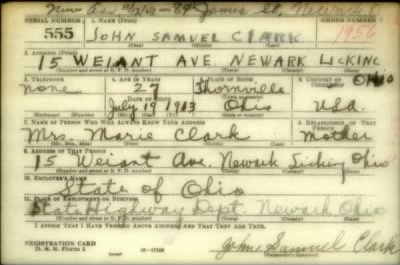 New Ad. 10/12/49 - 84 James St, Newark O
SERIAL NUMBER 1. NAME (Print) ORDER NUMBER
555 JOHN SAMUEL CLARK 1956
(First) (Middle) (Last)
2. ADDRESS (Print)
15 WEIANT AVE. NEWARK LICKING OHIO
(Number and street or R. F. D. number) (Town) (County) (State)
3. TELEPHONE 4. AGE IN YEARS 5. PLACE OF BIRTH 6. COUNTRY OF CITIZENSHIP
None 27 Thornville
DATE OF BIRTH
July 19 1913 Ohio U.S.A.
(Exchange) (Number) (Mo.) (Day) (Yr.) (State or country)
7. NAME OF PERSON WHO WILL ALWAYS KNOW YOUR ADDRESS 8. RELATIONSHIP OF THAT PERSON
Mrs. Marie Clark Mother
(Mr., Mrs., Miss) (First) (Middle) (Last)
9. ADDRESS OF THAT PERSON
15 Weiant Ave. Newark Licking Ohio
(Number and street or R. F. D. number) (Town) (County) (State)
10. EMPLOYER'S NAME
State of Ohio
11. PLACE OF EMPLOYMENT OR BUSINESS
State Highway Dept. Newark Ohio
(Number and street or R. F. D. number) (Town) (County) (State)
I AFFIRM THAT I HAVE VERIFIED ABOVE ANSWERS AND THAT THEY ARE TRUE.
REGISTRATION CARD
D. S. S. Form 1
John Samuel Clark